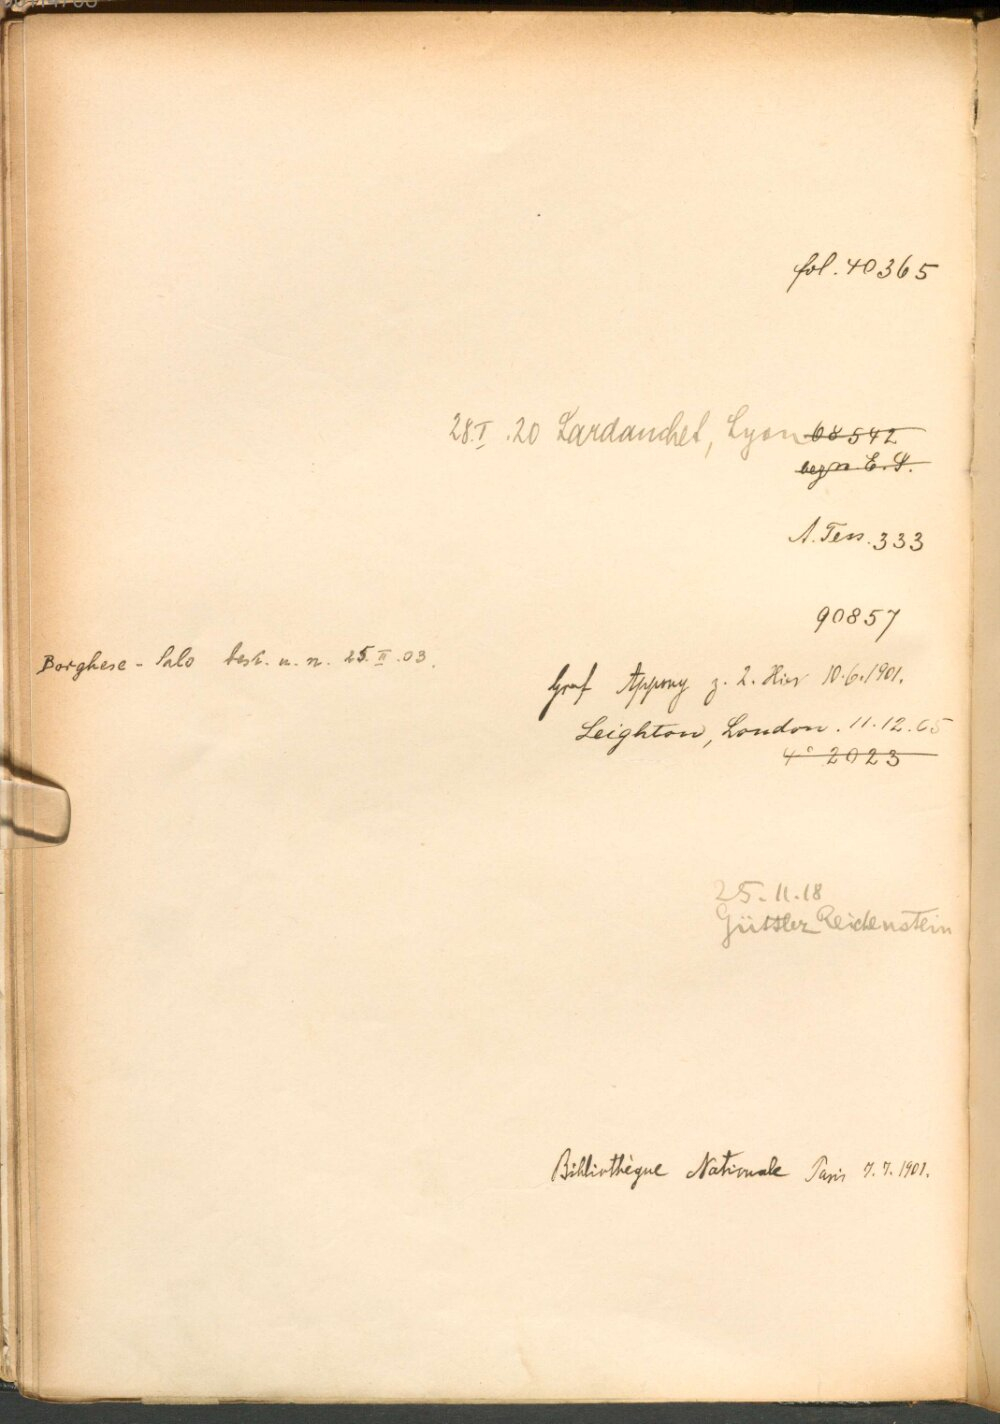 fol. 40365
28.I.20 Lardanchet, Lyon 68542
begn. E. S.
A. Tess. 333
90857
Borghese - Salo best. u. n. 25.II.03.
Graf Appony z. 2. Hier 10.6.1901.
Leighton, London. 11.12.05
4° 2023
25.11.18
Güttler Reichenstein
Bibliothèque Nationale Paris 7.7.1901.